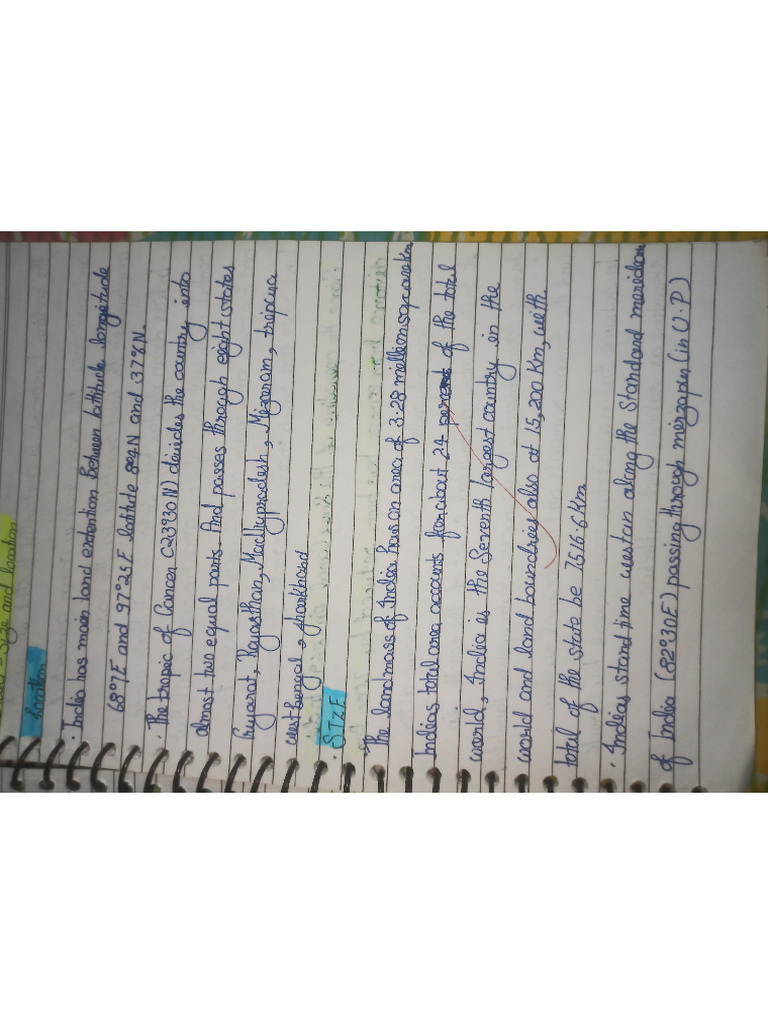 Size and location
Location
· India has main land extention Between latitude longitude
68°7E and 97°25E latitude 8°4N and 37°6N.
· The tropic of Cancer (23°30N) devides the country into
almost two equal parts. And passes through eight states
Gujarat, Rajasthan, Madhyapradesh, Mizoram, tripura
west bengal, Jharkhand
· SIZE
· The landmass of India has an area of 3.28 million square km
Indias total area accounts for about 2.4 percent of the total
world, India is the Seventh largest country in the
world and land boundries also at 15,200 Km, with
total of the state be 7516.6 Km
· Indias stand time westan along the Standard meridian
of India (82°30E) passing through mirzapur (in U.P)